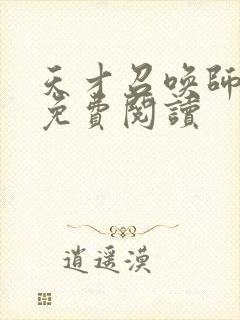 天才召唤師
免費閱讀
逍遥漠